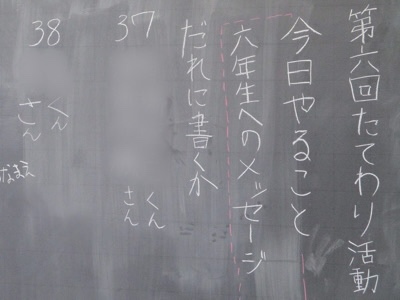 第六回たてわり活動
今日やること
六年生へのメッセージ
だれに書くか
37
くん
さん
38
くん
さん
なまえ